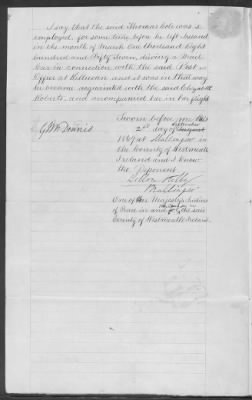 I say that the said Thomas Cole was
employed, for some time before he left Ireland
in the month of March One thousand Eight
hundred and Fifty Seven, driving a Mail
Car in connection with the said Post
Office at Killucan and it was in that way
he became acquainted with the said Elizabeth
Roberts, and accompanied her in her flight
Sworn before me this
September
2nd day of August
1869 at Mullingar in
the County of Westmeath
Ireland and I know
the Deponent
G W Dennis
Mullingar
One of Her Majesty's Justices
of Peace in and for the said
County of Westmeath Ireland.